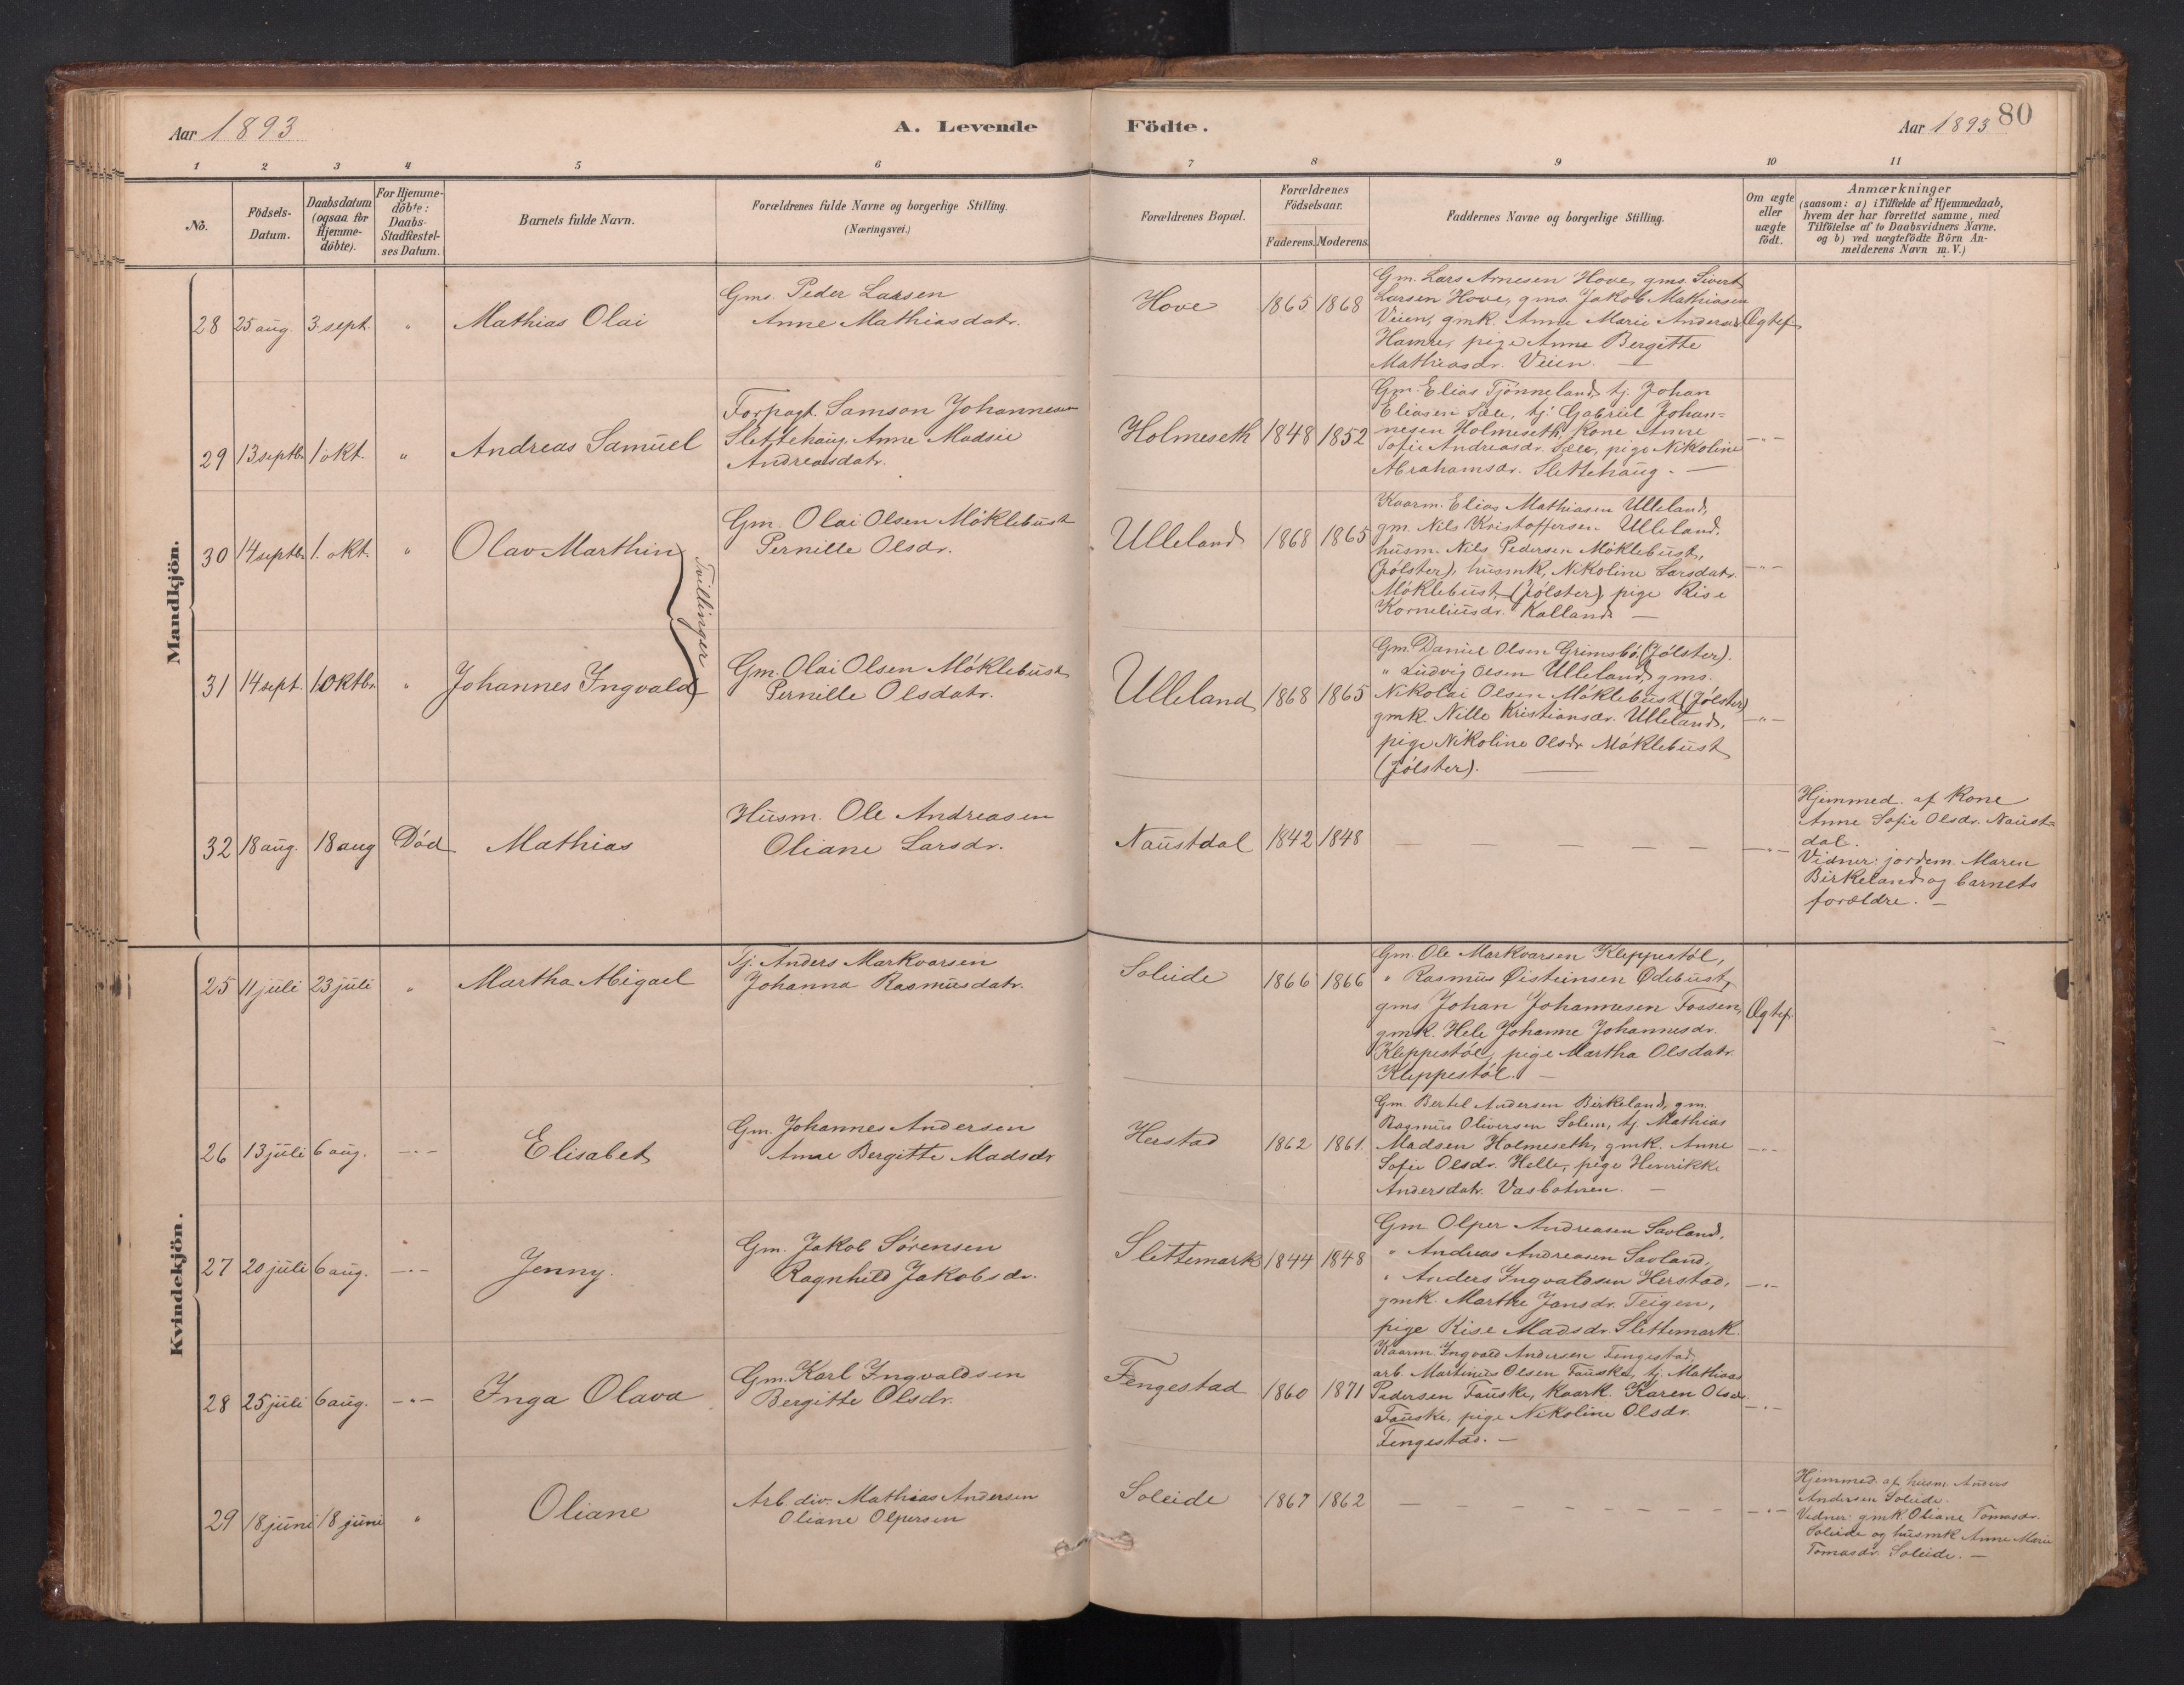 Aar 1893
A. Levende Födte.
Aar 1893 80
1 2 3 4 5 6 7 8 9 10 11
No.
Födsels-Datum.
Daabsdatum (ogsaa for Hjemme-döbte).
For Hjemme-döbte: Daabs-Stadfæstel-ses Datum.
Barnets fulde Navn.
Forældrenes fulde Navne og borgerlige Stilling.
(Næringsvei.)
Forældrenes Bopæl.
Forældrenes Födselsaar.
Faderens. Moderens.
Faddernes Navne og borgerlige Stilling.
Om ægte eller uægte födt.
Anmærkninger
(saasom: a) i Tilfælde af Hjemmedaab,
hvem der har forrettet samme, med
Tilföielse af to Daabsvidners Navne.
og b) ved uægtefödte Börn An-
melderens Navn m.V.)
Mandkjön.
28 25 aug. 3. sept. " Mathias Olai
Gms. Peder Larsen
Anne Mathiasdatr.
Hove 1865 1868
Gm. Lars Arnesen Hove, gms. Sivert
Larsen Hove, gms. Jakob Mathiasen
Veien, gmk. Anne Marie Andersdr.
Hamre, pige Anne Bergitte
Mathiasdr. Veien. —
Ægtef.
29 13 septb. 1 okt. " Andreas Samuel
Forpagt. Samson Johannesen
Slettehaug, Anne Madsie
Andreasdatr.
Holmeseth 1848 1852
Gm. Elias Tjönneland, tj. Johan
Eliasen Sæle, tj. Gabriel Johan=
nesen Holmeseth, Kone Anne
Sofie Andreasdr. Sæle, pige Nikoline
Abrahamsdr. Slettehaug. —
—"—
30 14 septb. 1. okt. " Olav Marthin
Tvillinger
Gm. Olai Olsen Möklebust
Pernille Olsdr.
Ulleland 1868 1865
Kaarm. Elias Mathiasen Ulleland,
gm. Nils Kristoffersen Ulleland,
husm. Nils Pedersen Möklebust,
(Jölster), husmk. Nikoline Larsdatr.
Möklebust (Jölster), pige Kise
Korneliusdr. Kalland. —
—"—
31 14 sept. 1. oktbr. " Johannes Ingvald
Gm. Olai Olsen Möklebust
Pernille Olsdatr.
Ulleland 1868 1865
Gm. Daniel Olsen Grimsbö (Jölster).
" Ludvig Olsen Ulleland, gms.
Nikolai Olsen Möklebust (Jölster)
gmk. Nille Kristiansdr. Ulleland,
pige Nikoline Olsdr. Möklebust
(Jölster). —
—"—
32 18 aug. 18 aug Död Mathias
Husm. Ole Andreasen
Oliane Larsdr.
Naustdal 1842 1848
— — — — — —
—"—
Hjemmed. af Kone
Anne Sofie Olsdr. Naust=
dal.
Vidner: jordem. Maren
Birkeland og barnets
forældre. —
Kvindekjön.
25 11 juli 23 juli " Martha Abigael
Tj. Anders Markvarsen
Johanna Rasmusdatr.
Soleide 1866 1866
Gm. Ole Markvarsen Kleppestöl,
" Rasmus Øisteinsen Ødebust,
gms. Johan Johannesen Fossen,
gmk. Hele Johanne Johannesdr.
Kleppestöl, pige Martha Olsdatr.
Kleppestöl. —
Ægtef.
26 13 juli 6 aug. —"— Elisabet
Gm. Johannes Andersen
Anne Bergitte Madsdr.
Herstad 1862 1861.
Gm. Bertel Andersen Birkeland, gm.
Rasmus Oliversen Solem, tj. Mathias
Madsen Holmeseth, gmk. Anne
Sofie Olsdr. Helle, pige Henrikke
Andersdatr. Vasbotnen. —
—"—
27 20 juli 6 aug. —"— Jenny.
Gm. Jakob Sörensen
Ragnhild Jakobsdr.
Slettemark 1844 1848
Gm. Olper Andreasen Savland,
" Andreas Andreasen Savland,
" Anders Ingvaldsen Herstad,
gmk. Marthe Jansdr. Teigen,
pige Kise Madsdr. Slettemark.
—"—
28 25 juli 6 aug. —"— Inga Olava
Gm. Karl Ingvaldsen
Bergitte Olsdr.
Fengestad 1860 1871
Kaarm. Ingvald Andersen Fengestad,
arb. Martinus Olsen Fauske, tj. Mathias
Pedersen Fauske, kaark. Karen Olsdr.
Fauske, pige Nikoline Olsdr.
Fengestad. —
—"—
29 18 juni 18 juni " Oliane
Arb. div. Mathias Andersen
Oliane Olpersen
Soleide 1867 1862
— — — — — —
—"—
Hjemmed. af husm. Anders
Andersen Soleide.
Vidner: gmk. Oliane Tomasdr.
Soleide og husmk Anne Marie
Tomasdr. Soleide. —